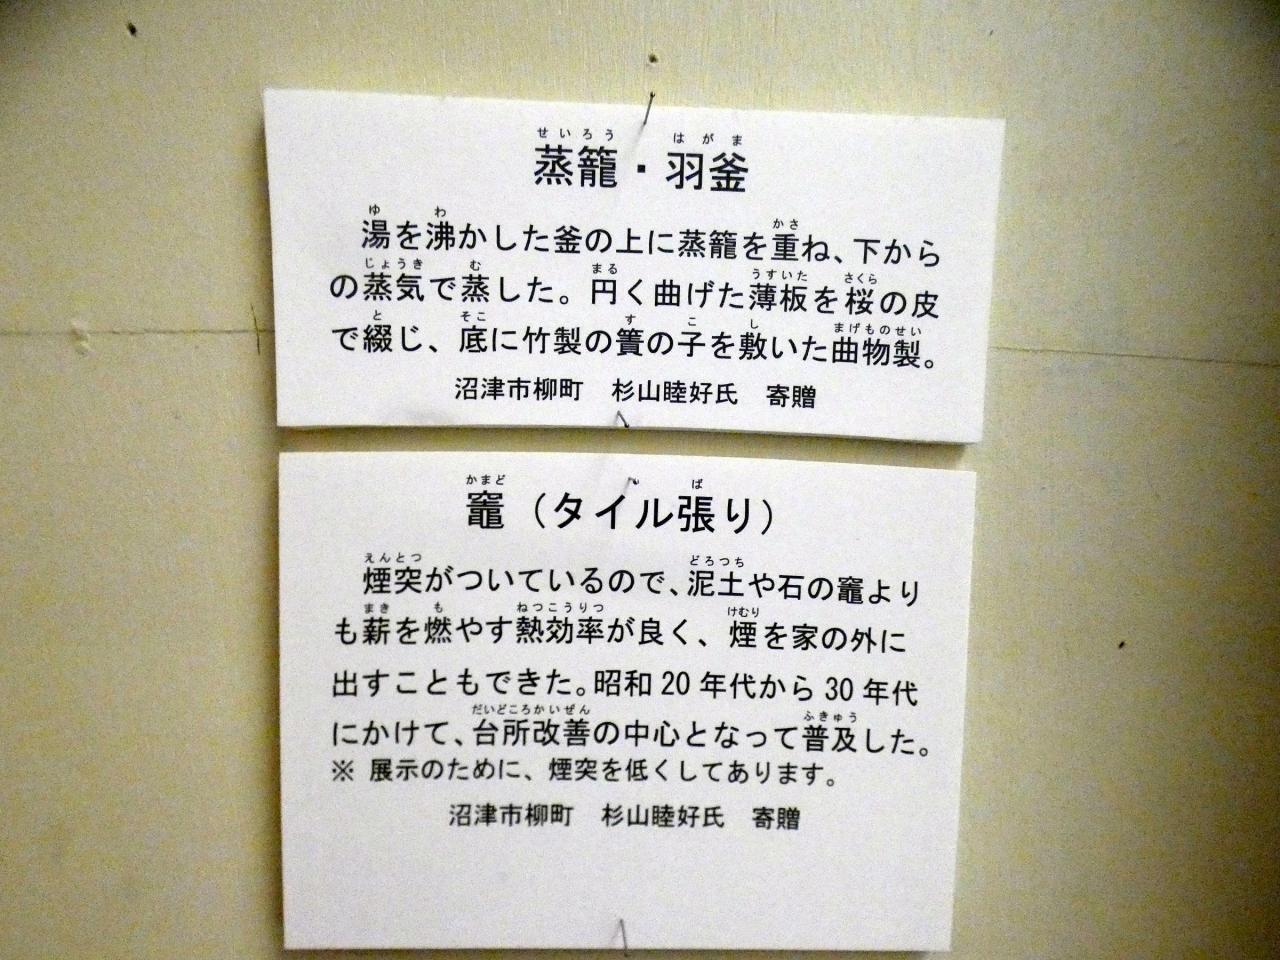 せいろう はがま
蒸籠・羽釜
ゆ わ かさ
湯を沸かした釜の上に蒸籠を重ね、下から
じょうき む まる うすいた さくら
の蒸気で蒸した。円く曲げた薄板を桜の皮
と そこ す こ し まげものせい
で綴じ、底に竹製の簀の子を敷いた曲物製。
沼津市柳町 杉山睦好氏 寄贈
かまど ば
竈（タイル張り）
えんとつ どろつち
煙突がついているので、泥土や石の竈より
まき も ねつこうりつ けむり
も薪を燃やす熱効率が良く、煙を家の外に
出すこともできた。昭和20年代から30年代
だいどころかいぜん ふきゅう
にかけて、台所改善の中心となって普及した。
※ 展示のために、煙突を低くしてあります。
沼津市柳町 杉山睦好氏 寄贈